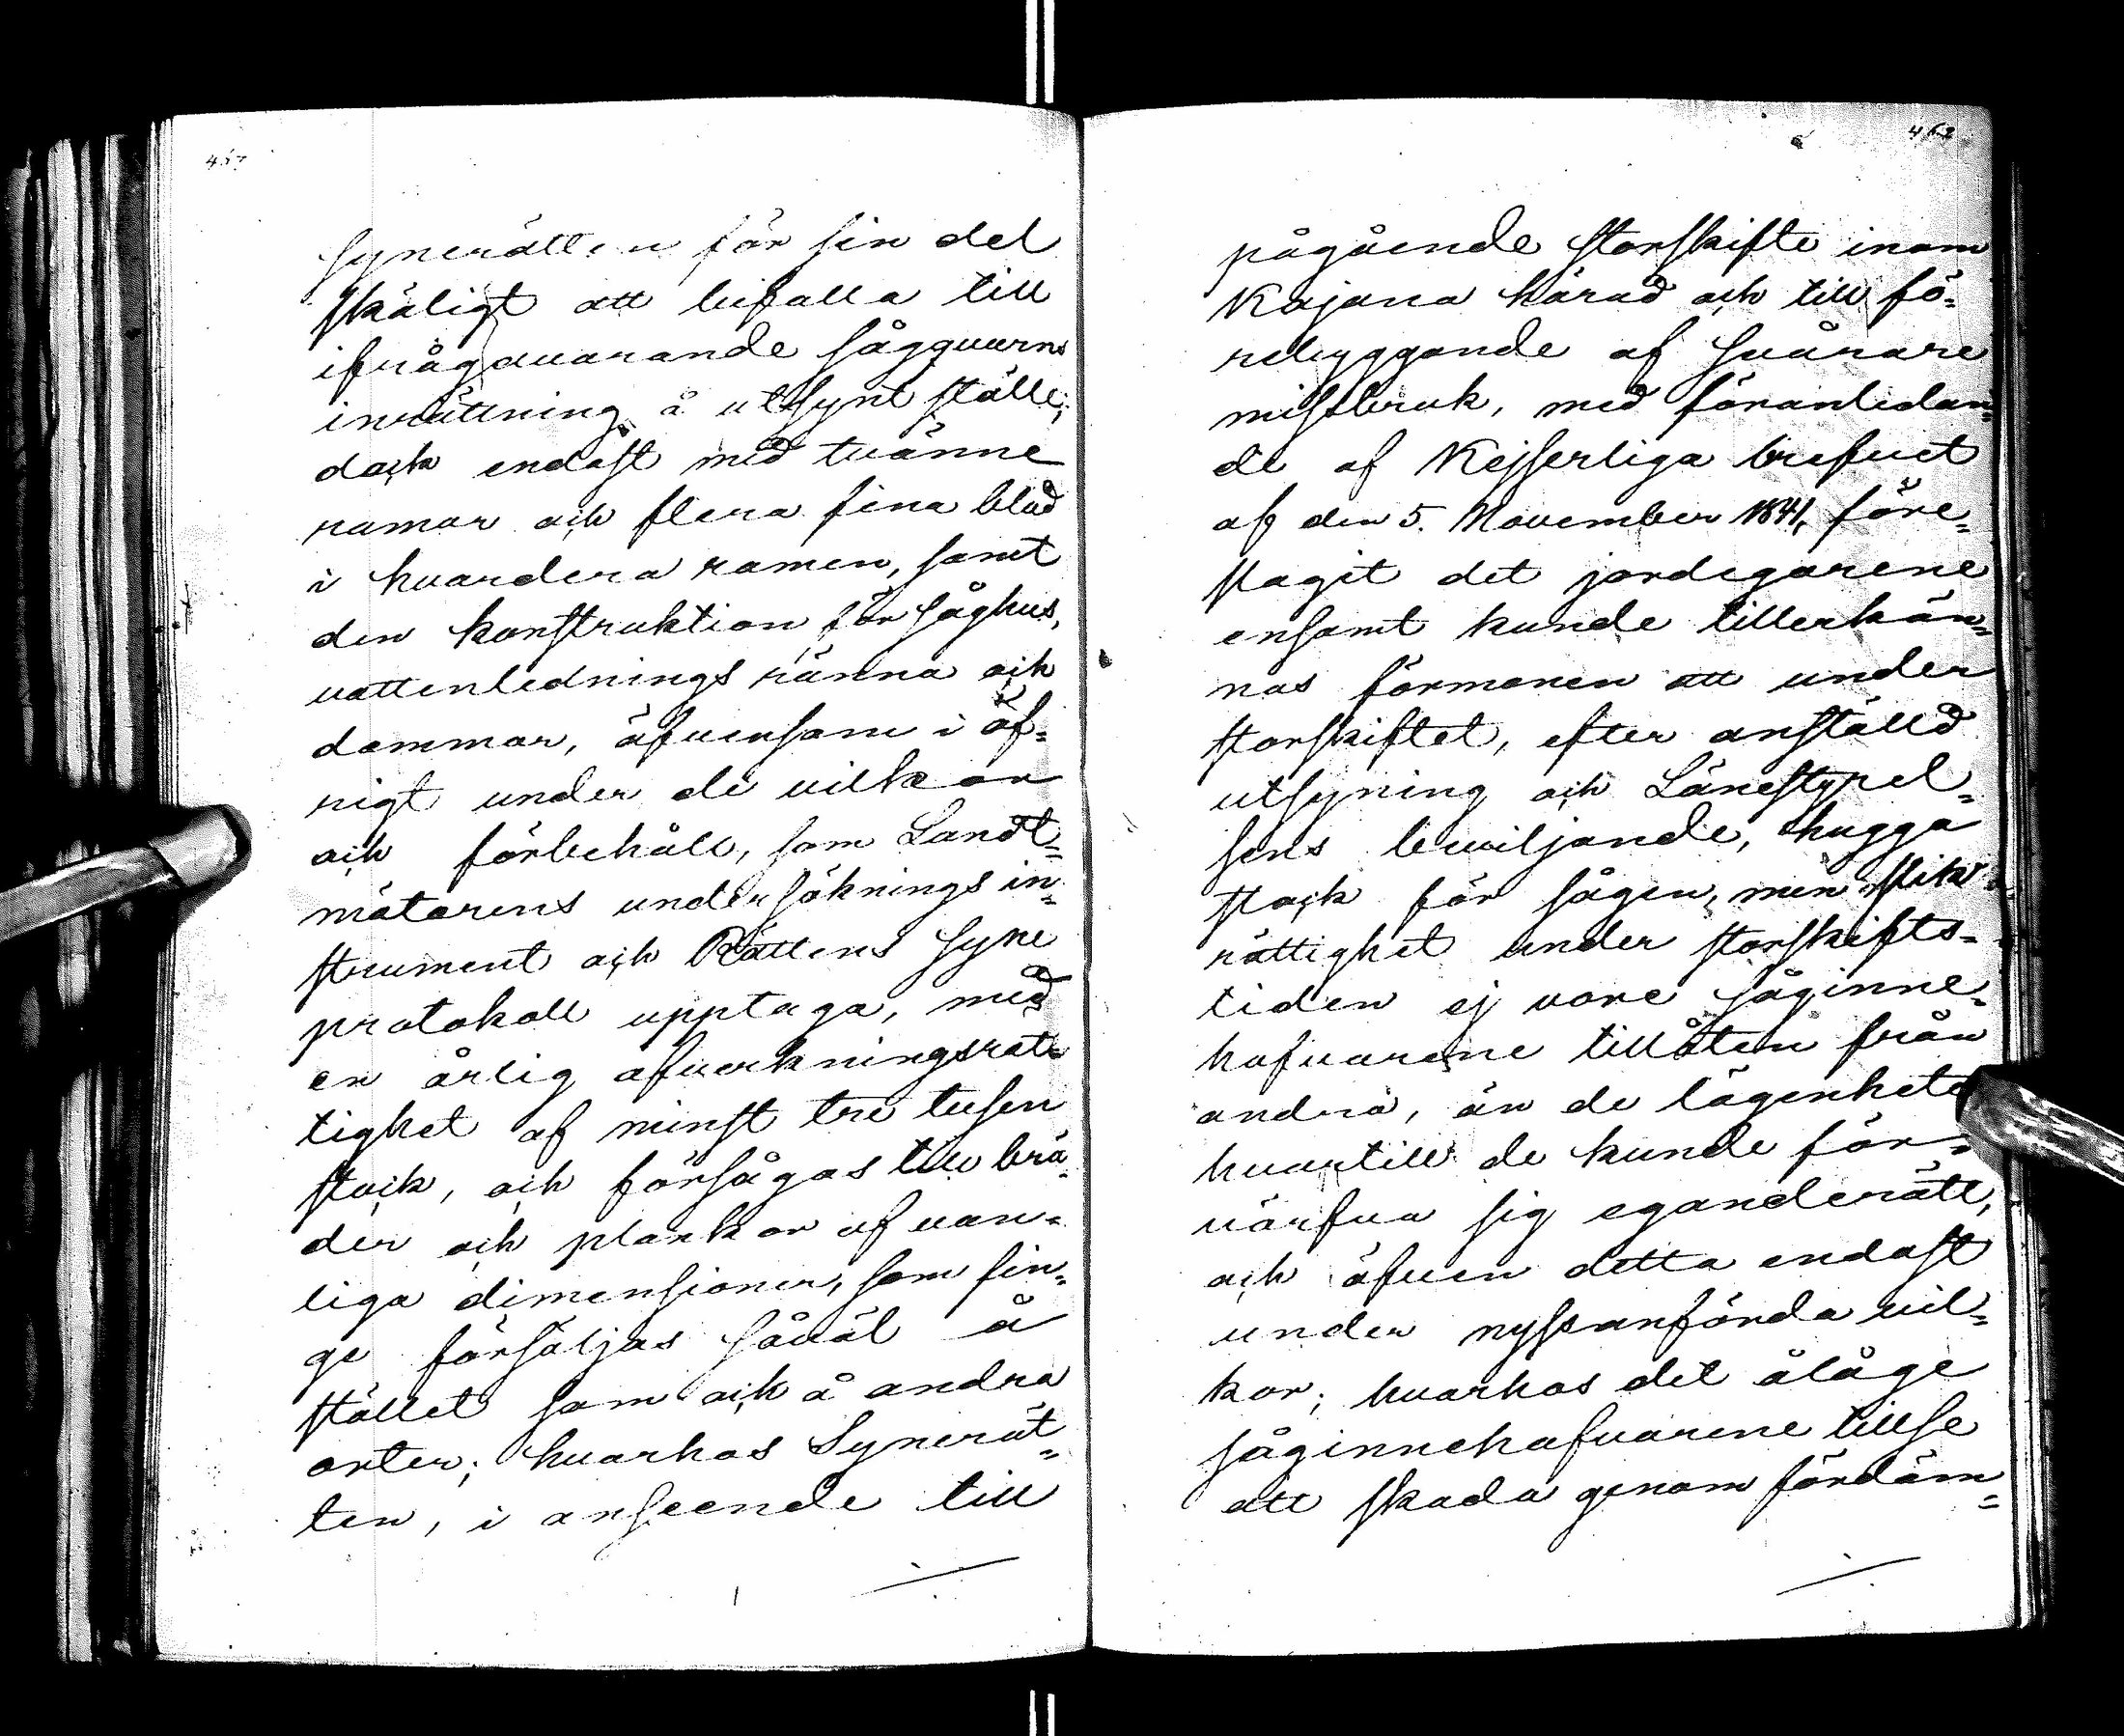 Synerätten för sin del
skäligt att bifalla till
ifrågavarande sågqvarns
inrättning å utsynt ställe;
dock endast med tvänne
ramar och flera fina blad
i hvardera ramen, samt
den konstruktion för såghus,
vattenlednings ränna och
dammar, äfvensom i öf-
rigt under de vilkor
och förbehåll, som Landt-
mätarens undersöknings in-
strument och Rättens Syne
protokoll upptaga, med
en årlig afverkningsrät-
tighet af minst tre tusen
stock, och försågas till brä-
der och plankor af van-
liga dimensioner, som fin-
ge försäljas såväl å
stället som ock å andra
orter; hvarhos Synerät-
ten, i anseende till
pågående storskifte inom
Kajana härad och till fö-
rebyggande af svårare
missbruk, med föranledan-
de af Kejserliga brefvet
af den 5. November 1841, före-
slagit det jordegarene
ensamt kunde tillerkän-
nas förmonen att under
storskiftet, efter anställd
utsyning och Länestyrel-
sens beviljande, hugga
stock för sågen, men slik
rättighet under storskifts-
tiden ej vore såginne-
hafvarene tillåten från
andra, än de lägenheter
hvartill de kunde för-
värfva sig eganderätt,
och äfven detta endast
under nyssanförda vil-
kor; hvarhos det ålåge
såginnehafvarene tillse
att skada genom fördäm-